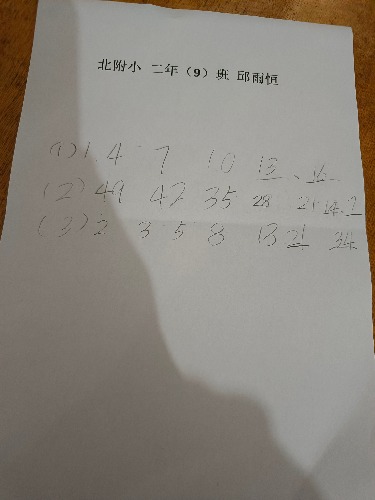 北附小 二年（9）班 邱雨恒
(1) 1. 4 7 10 13 、 16
(2) 49 42 35 28 21 14. 7
(3) 2 3 5 8 13 21 34